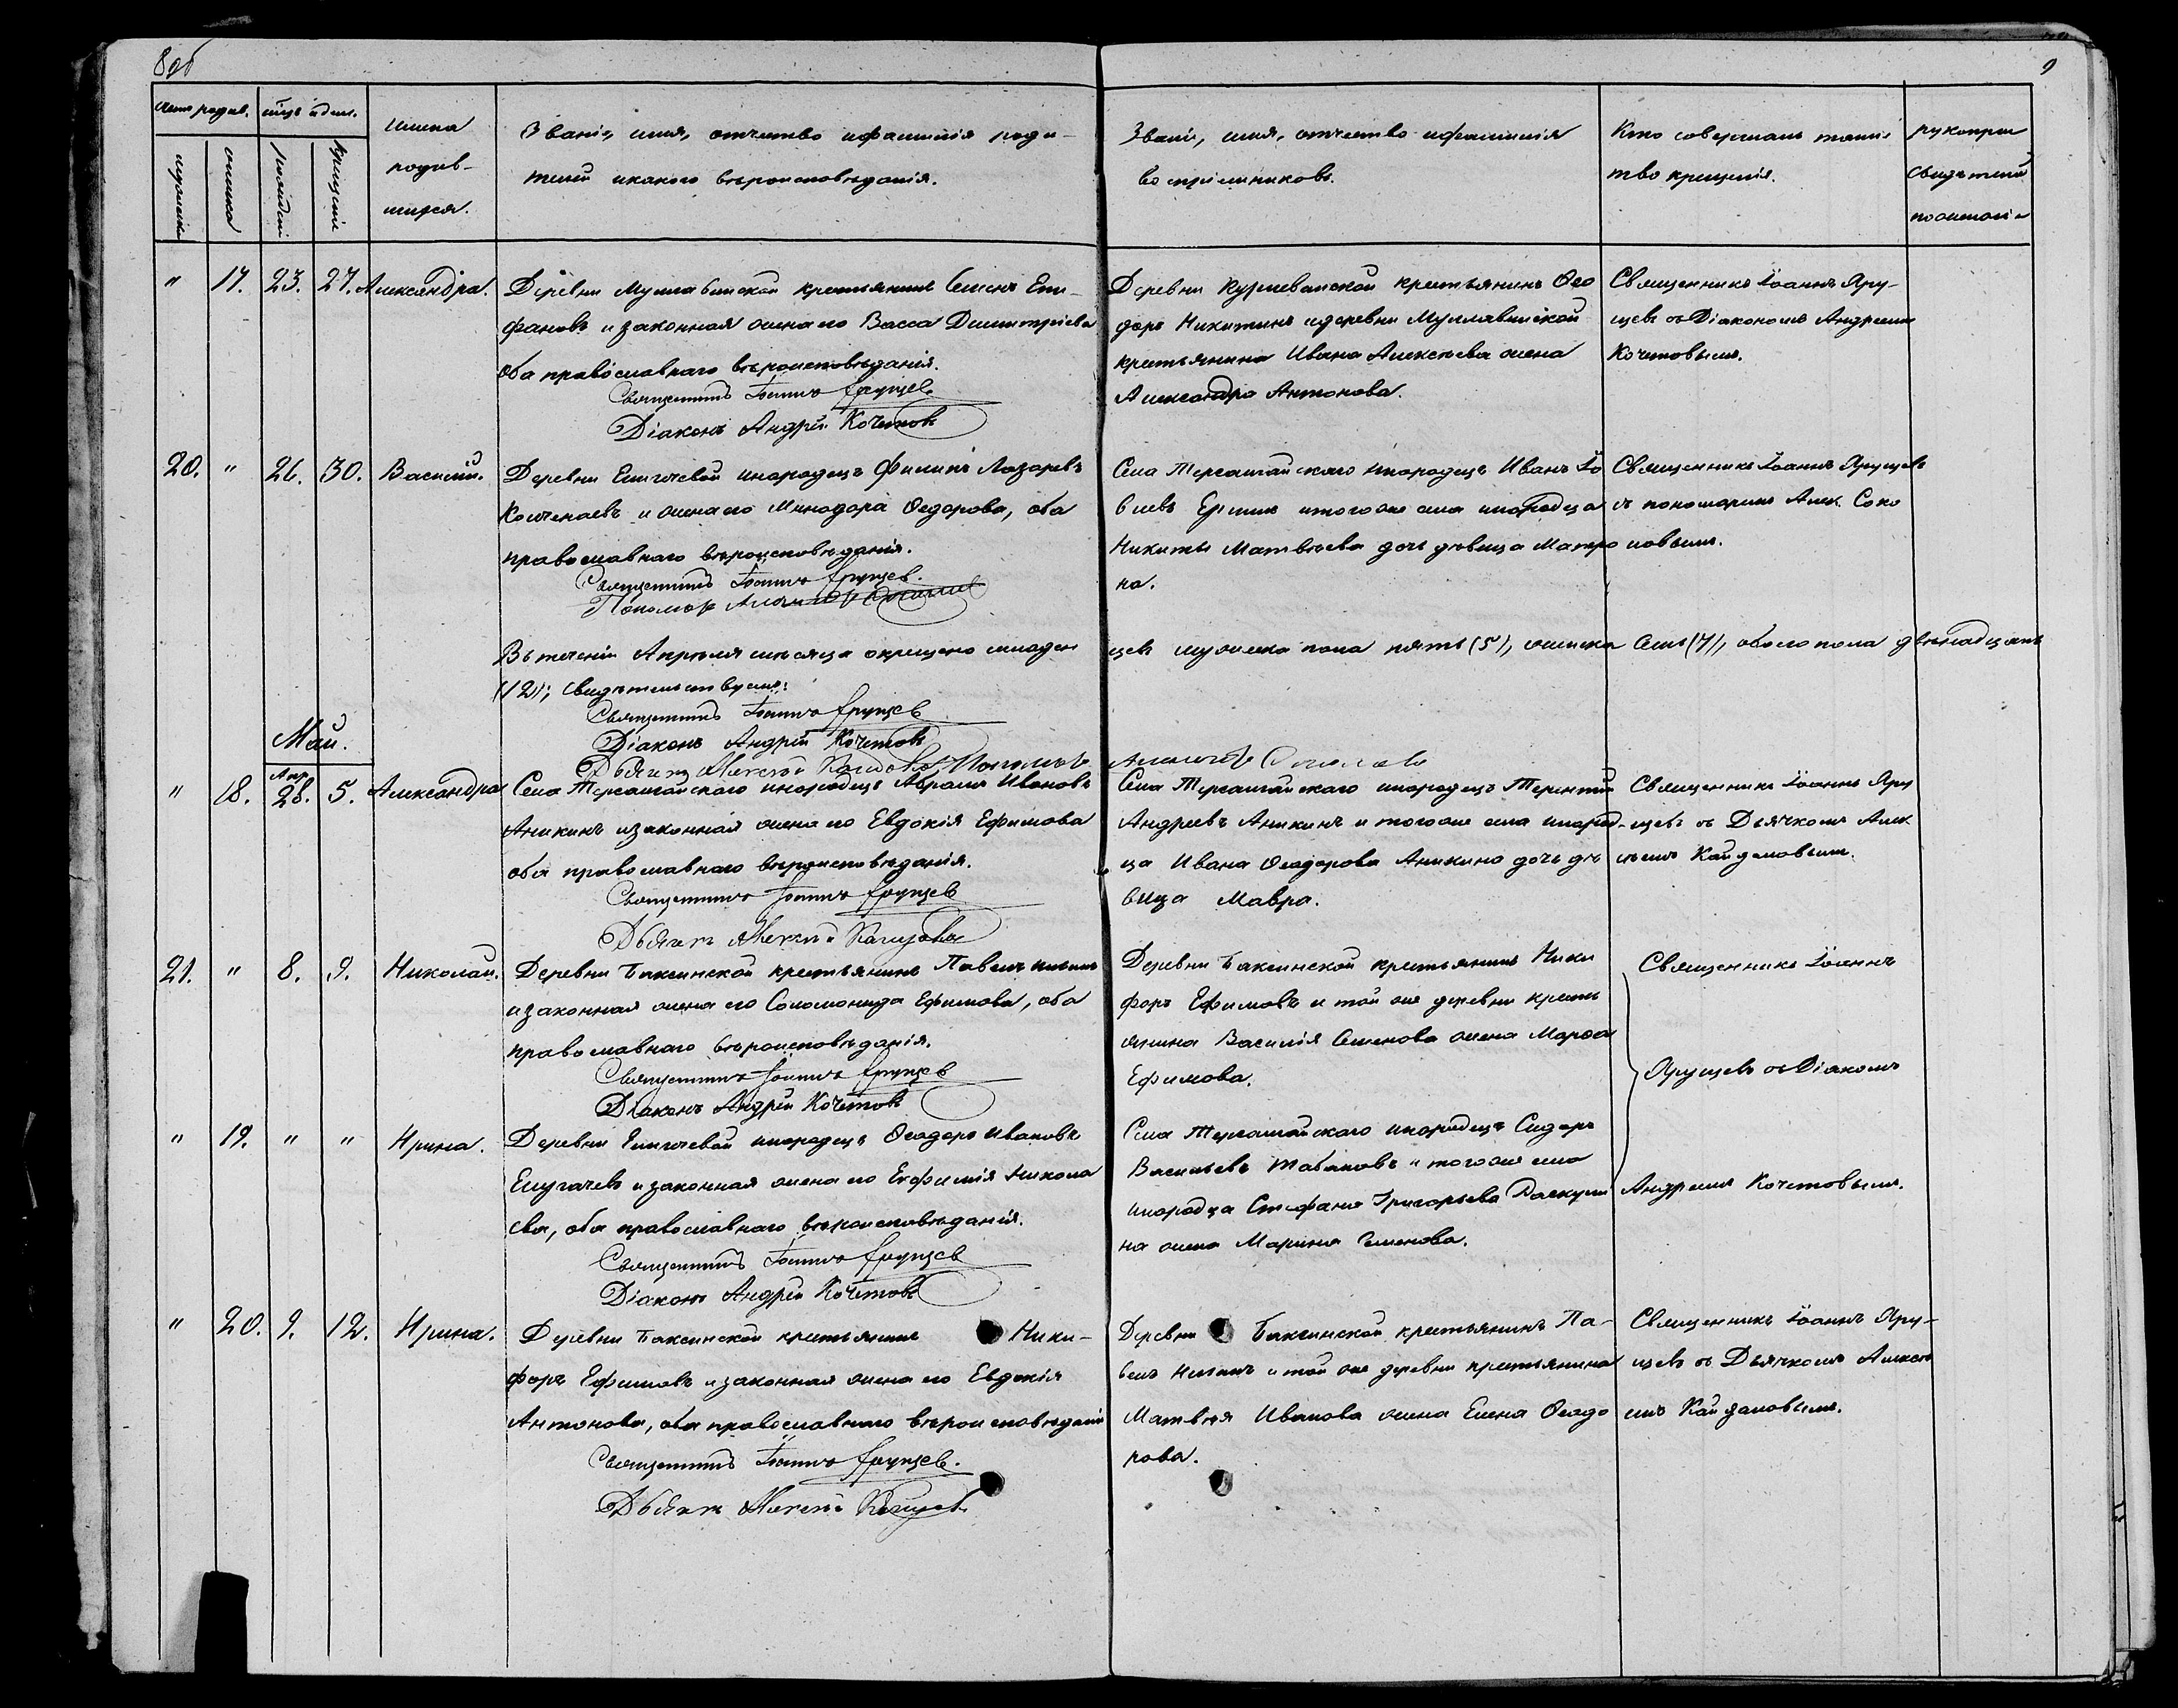 8об
9
Счетъ родив. мѣсяцъ и день.
мужеска
женска
рожденія
крещенія
имена
родив-
шихся.
Званіе, имя, отчество и фамилія роди-
телей и какого вѣроисповѣданія.
Званіе, имя, отчество и фамилія
воспріемниковъ.
Кто совершалъ таин-
ство крещенія.
рукоприк
свидѣтелей
по желані
" 17. 23. 27. Александра.
Деревни Муллавинской крестьянинъ Семенъ Епи-
фановъ и законная жена его Васса Димитріева
оба православнаго вѣроисповѣданія.
Священникъ Іоаннъ Ярущевъ
Діаконъ Андрей Кочетовъ
Деревни Куржеванской крестьянинъ Ѳео
доръ Никитинъ и деревни Муллавинской
крестьянина Ивана Алексѣева жена
Александра Антонова.
Священникъ Іоаннъ Яру-
щевъ съ Діакономъ Андреемъ
Кочетовымъ.
20. " 26. 30. Василій.
Деревни Епигачевой инородецъ Филипъ Лазаревъ
и жена его Минодора Ѳедорова, оба
православнаго вѣроисповѣданія.
Священникъ Іоаннъ Ярущевъ.
Пономарь
Села Тергашайскаго инородецъ Иванъ Іо
влевъ и того же села инородца
Никиты Матвѣева дочь дѣвица Матро
на.
Священникъ Іоаннъ Ярущевъ
съ пономаремъ Алек. Соко
ловымъ.
Въ теченіи Апрѣля мѣсяца окрещено младен
цевъ мужеска пола пять (5), женска семь (7), обоего пола двѣнадцать
(12); свидѣтельствуемъ:
Священникъ Іоаннъ Ярущевъ
Діаконъ Андрей Кочетовъ
Дьячекъ Алексѣй Пономарь
Май.
" 18. Апр. 28. 5. Александра
Села Тергашайскаго инородецъ Абрамъ Ивановъ
Аникинъ и законная жена его Евдокія Ефимова
оба православнаго вѣроисповѣданія.
Священникъ Іоаннъ Ярущевъ
Дьячекъ Алексѣй
Села Тергашайскаго инородецъ Терентій
Андреевъ Аникинъ и того же села инород-
ца Ивана Ѳеодорова Аникина дочь дѣ
вица Мавра.
Священникъ Іоаннъ Яру
щевъ съ Дьячкомъ Алек
сѣемъ Кайдаловымъ.
21. " 8. 9. Николай.
Деревни Баксинской крестьянинъ Павелъ
и законная жена его Соломонида Ефимова, оба
православнаго вѣроисповѣданія.
Священникъ Іоаннъ Ярущевъ
Діаконъ Андрей Кочетовъ
Деревни Баксинской крестьянинъ Ники
форъ Ефимовъ и той же деревни кресть
янина Василія Семенова жена Марѳа
Ефимова.
Священникъ Іоаннъ
Ярущевъ съ Діакономъ
" 19. " " Ирина.
Деревни Епигачевой инородецъ Ѳеодоръ Ивановъ
Епугачевъ и законная жена его Евфимія Никола
ева, оба православнаго вѣроисповѣданія.
Священникъ Іоаннъ Ярущевъ
Діаконъ Андрей Кочетовъ
Села Тергашайскаго инородецъ Сидоръ
Васильевъ Табаковъ и того же села
инородца Стефана Григорьева
на жена Марина Семенова.
Андреемъ Кочетовымъ.
" 20. 9. 12. Ирина.
Деревни Баксинской крестьянинъ Ники-
форъ Ефимовъ и законная жена его Евдокія
Антонова, оба православнаго вѣроисповѣданія
Священникъ Іоаннъ Ярущевъ.
Дьячекъ Алексѣй
Деревни Баксинской крестьянинъ Па-
велъ и той же деревни крестьянина
Матвѣя Иванова жена Елена Ѳеодо
рова.
Священникъ Іоаннъ Яру-
щевъ съ Дьячкомъ Алексѣ
емъ Кайдаловымъ.